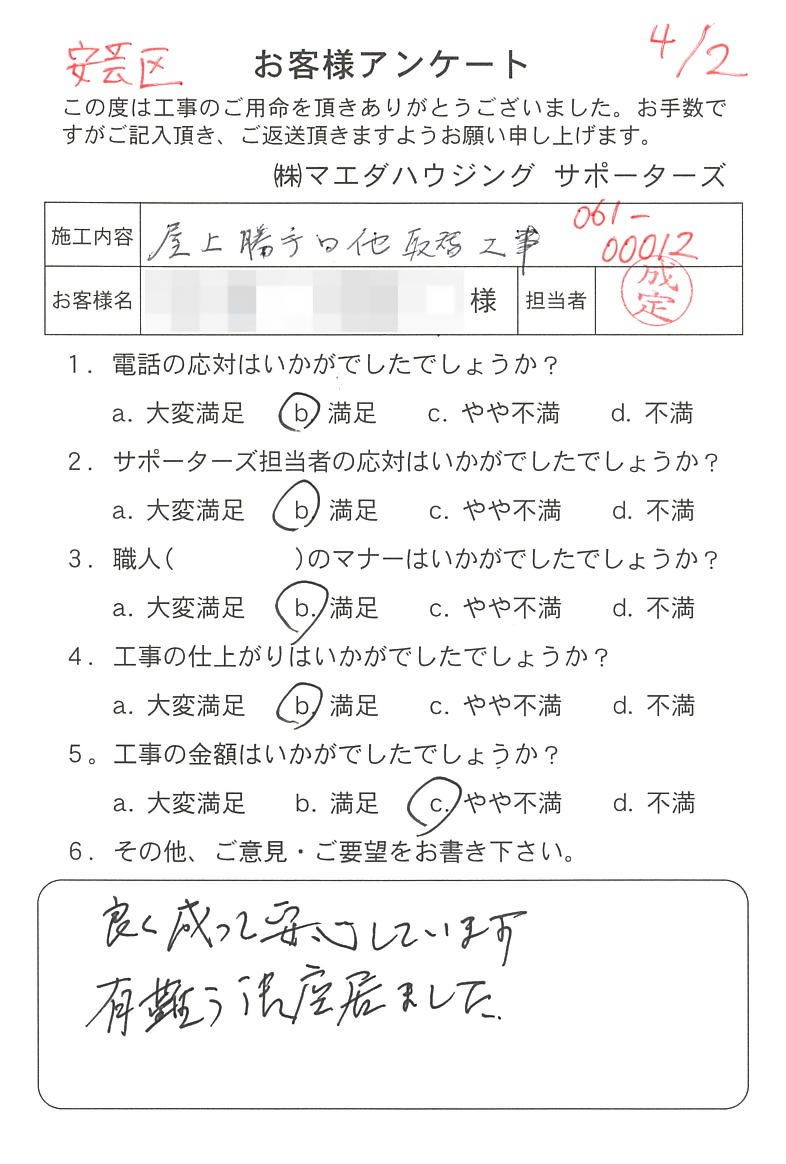 安芸区
お客様アンケート
4/2
この度は工事のご用命を頂きありがとうございました。お手数で
すがご記入頂き、ご返送頂きますようお願い申し上げます。
㈱マエダハウジング サポーターズ
施工内容 屋上勝手口他取替工事
061-
00012
お客様名 様 担当者 成定
1. 電話の応対はいかがでしたでしょうか?
a. 大変満足 b. 満足 c. やや不満 d. 不満
2. サポーターズ担当者の応対はいかがでしたでしょうか?
a. 大変満足 b. 満足 c. やや不満 d. 不満
3. 職人( )のマナーはいかがでしたでしょうか?
a. 大変満足 b. 満足 c. やや不満 d. 不満
4. 工事の仕上がりはいかがでしたでしょうか?
a. 大変満足 b. 満足 c. やや不満 d. 不満
5。工事の金額はいかがでしたでしょうか?
a. 大変満足 b. 満足 c. やや不満 d. 不満
6. その他、ご意見・ご要望をお書き下さい。
良く成って安心しています
有難う御座居ました.